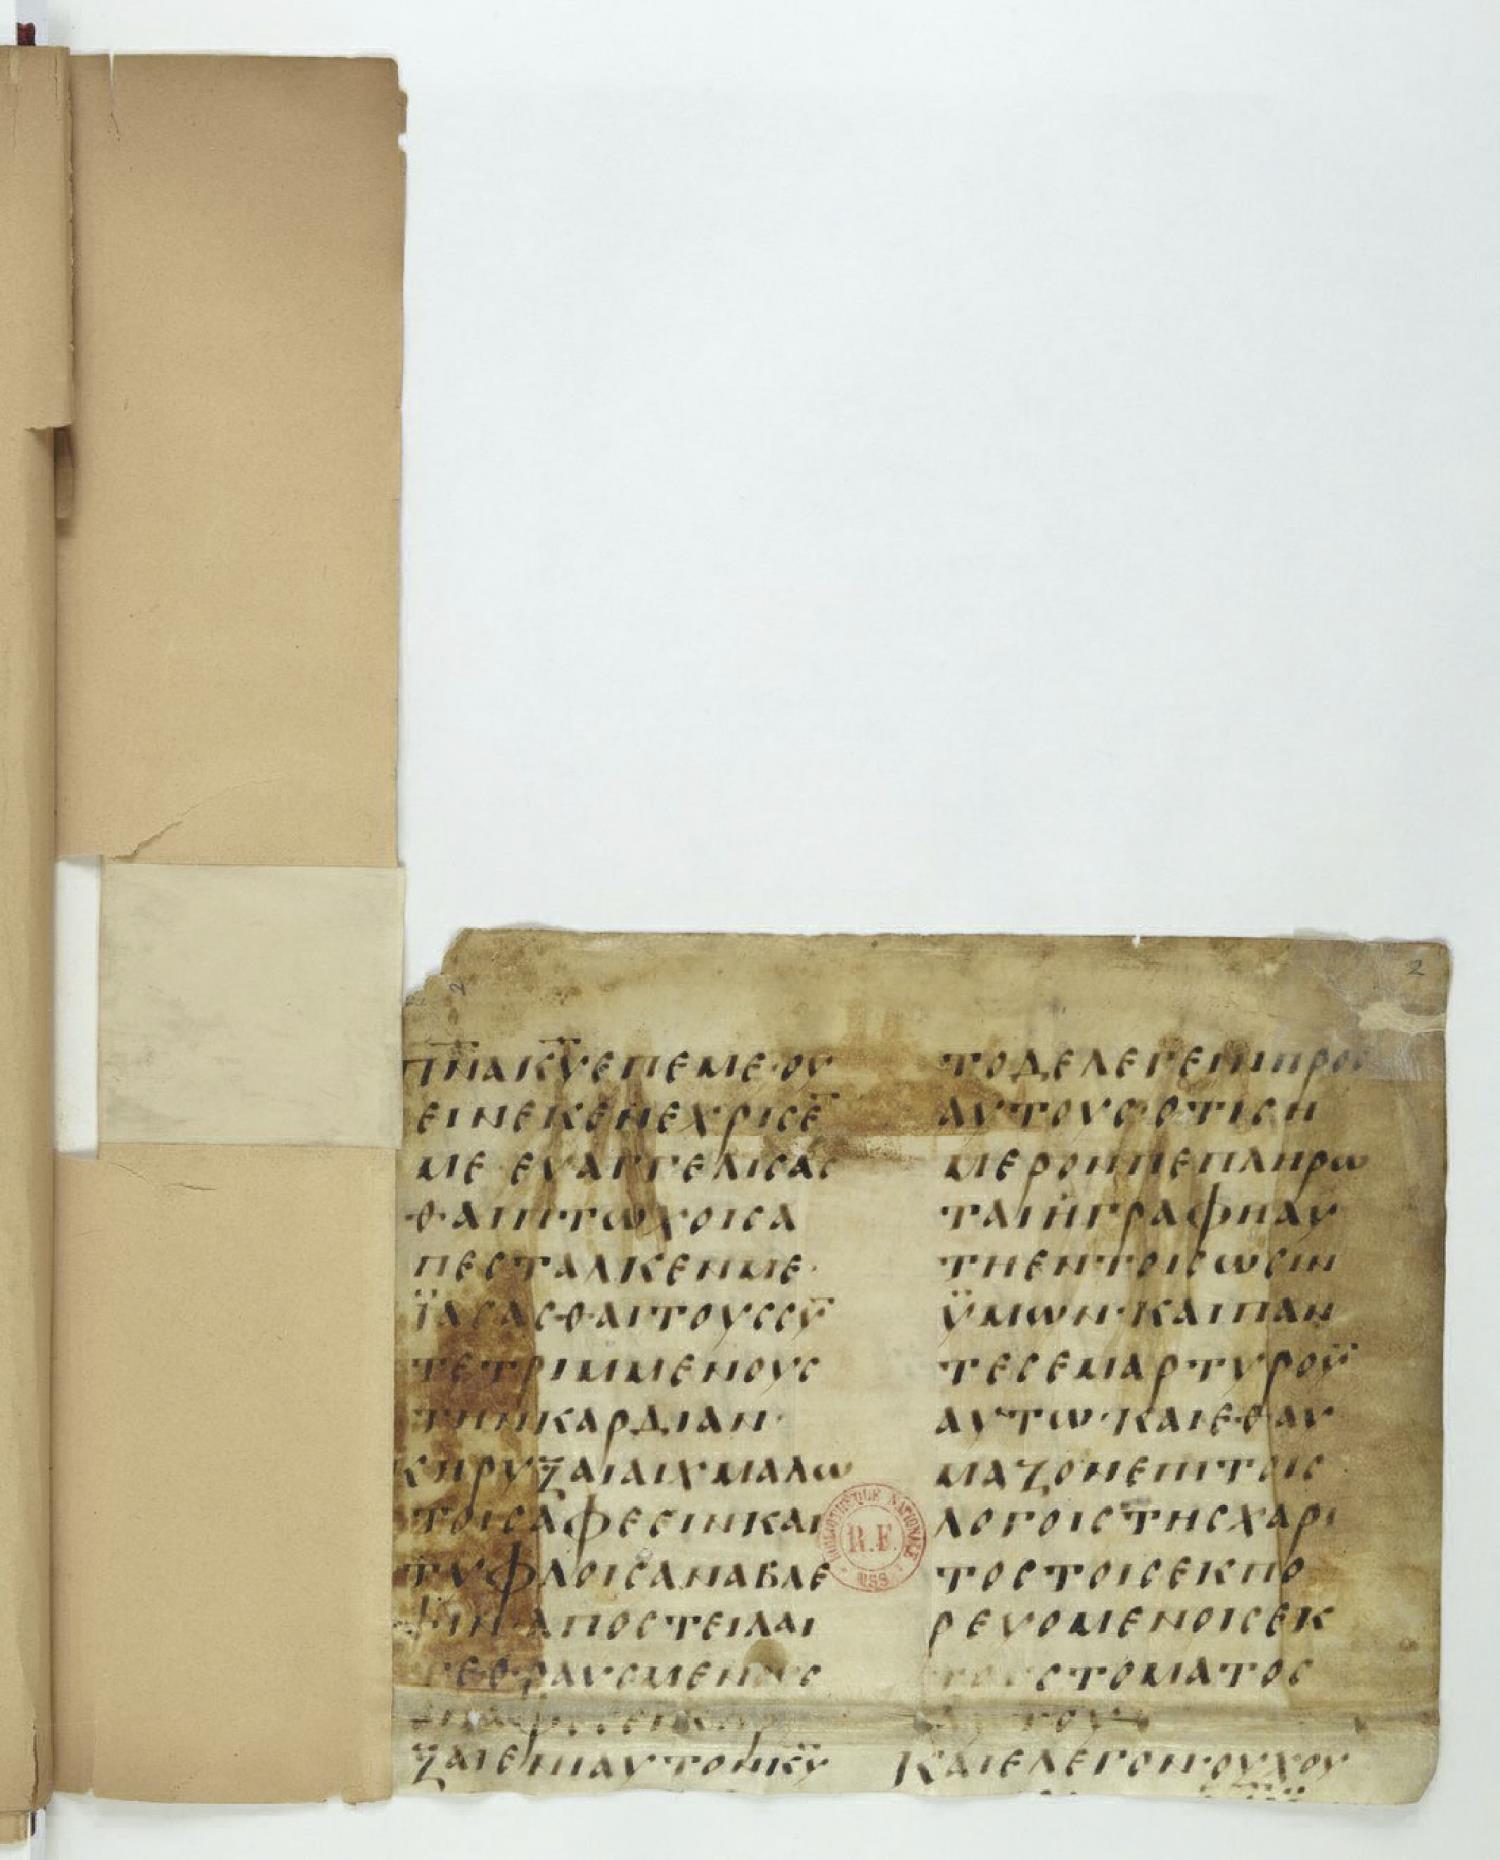 2
2
ΠΝΑΚΥΕΠΕΜΕ·ΟΥ
ΕΙΝΕΚΕΝΕΧΡΙСΕ̅
ΜΕ ΕΥΑΓΓΕΛΙСΑС
ΘΑΙΠΤΩΧΟΙСΑ
ΠΕСΤΑΛΚΕΝΜΕ·
ΪΑСΑСΘΑΙΤΟΥССΫ
ΤΕΤΡΙΜΜΕΝΟΥС
ΤΗΝΚΑΡΔΙΑΝ·
ΚΗΡΥΞΑΙΑΙΧΜΑΛΩ
ΤΟΙСΑΦΕСΙΝΚΑΙ
ΤΥΦΛΟΙСΑΝΑΒΛΕ
ΨΙΝ·ΑΠΟСΤΕΙΛΑΙ
ΤΕΘΡΑΥСΜΕΝΟΥС
ΞΑΙΕΝΙΑΥΤΟΝΚΥ
ΤΟΔΕΛΕΓΕΙΝΠΡΟС
ΑΥΤΟΥС·ΟΤΙСΗ
ΜΕΡΟΝΠΕΠΛΗΡΩ
ΤΑΙΗΓΡΑΦΗΑΥ
ΤΗΕΝΤΟΙСΩСΙΝ
ΫΜΩΝ·ΚΑΙΠΑΝ
ΤΕСΕΜΑΡΤΥΡΟΥ̅
ΑΥΤΩ·ΚΑΙΕΘΑΥ
ΜΑΖΟΝΕΠΙΤΟΙС
ΛΟΓΟΙСΤΗСΧΑΡΙ
ΤΟСΤΟΙСΕΚΠΟ
ΡΕΥΟΜΕΝΟΙСΕΚ
ΤΟΥСΤΟΜΑΤΟС
ΑΥΤΟΥ
ΚΑΙΕΛΕΓΟΝ·ΟΥΧΟΥ
BIBLIOTHÈQUE NATIONALE
R.F.
MSS